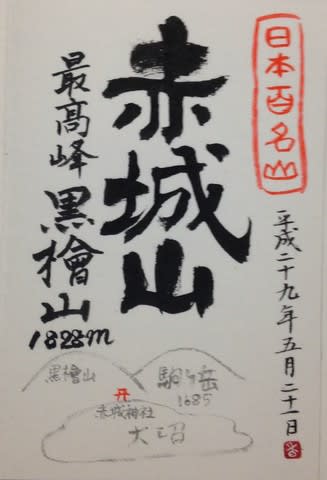 日本百名山
平成二十九年五月二十一日
赤城山
最高峰 黒檜山
1828m
黒檜山
駒ヶ岳
1685
赤城神社
大沼